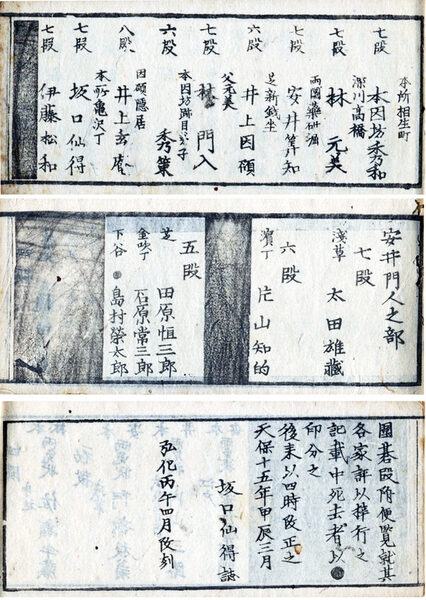 本所相生町
七段 本因坊秀和
深川高橋
七段 林 元美
両国薬研堀
七段 安井算知
芝新銭座
六段 井上因碩
父元美
七段 林 門入
本因坊跡目
六段 秀策
因碩隠居
八段 井上玄庵
本所亀沢丁
七段 坂口仙得
七段 伊藤松和
安井門人之部
七段
浅草 太田雄蔵
六段
濱丁 片山知的
五段
芝 田原恒三郎
金吹丁 石原常三郎
下谷 島村栄太郎
圍碁段附便覧就其
各家評以梓行之
記載中死去者以●
印分之
後来以四時改正之
天保十五年甲辰三月
坂口仙得誌
弘化丙午四月改刻